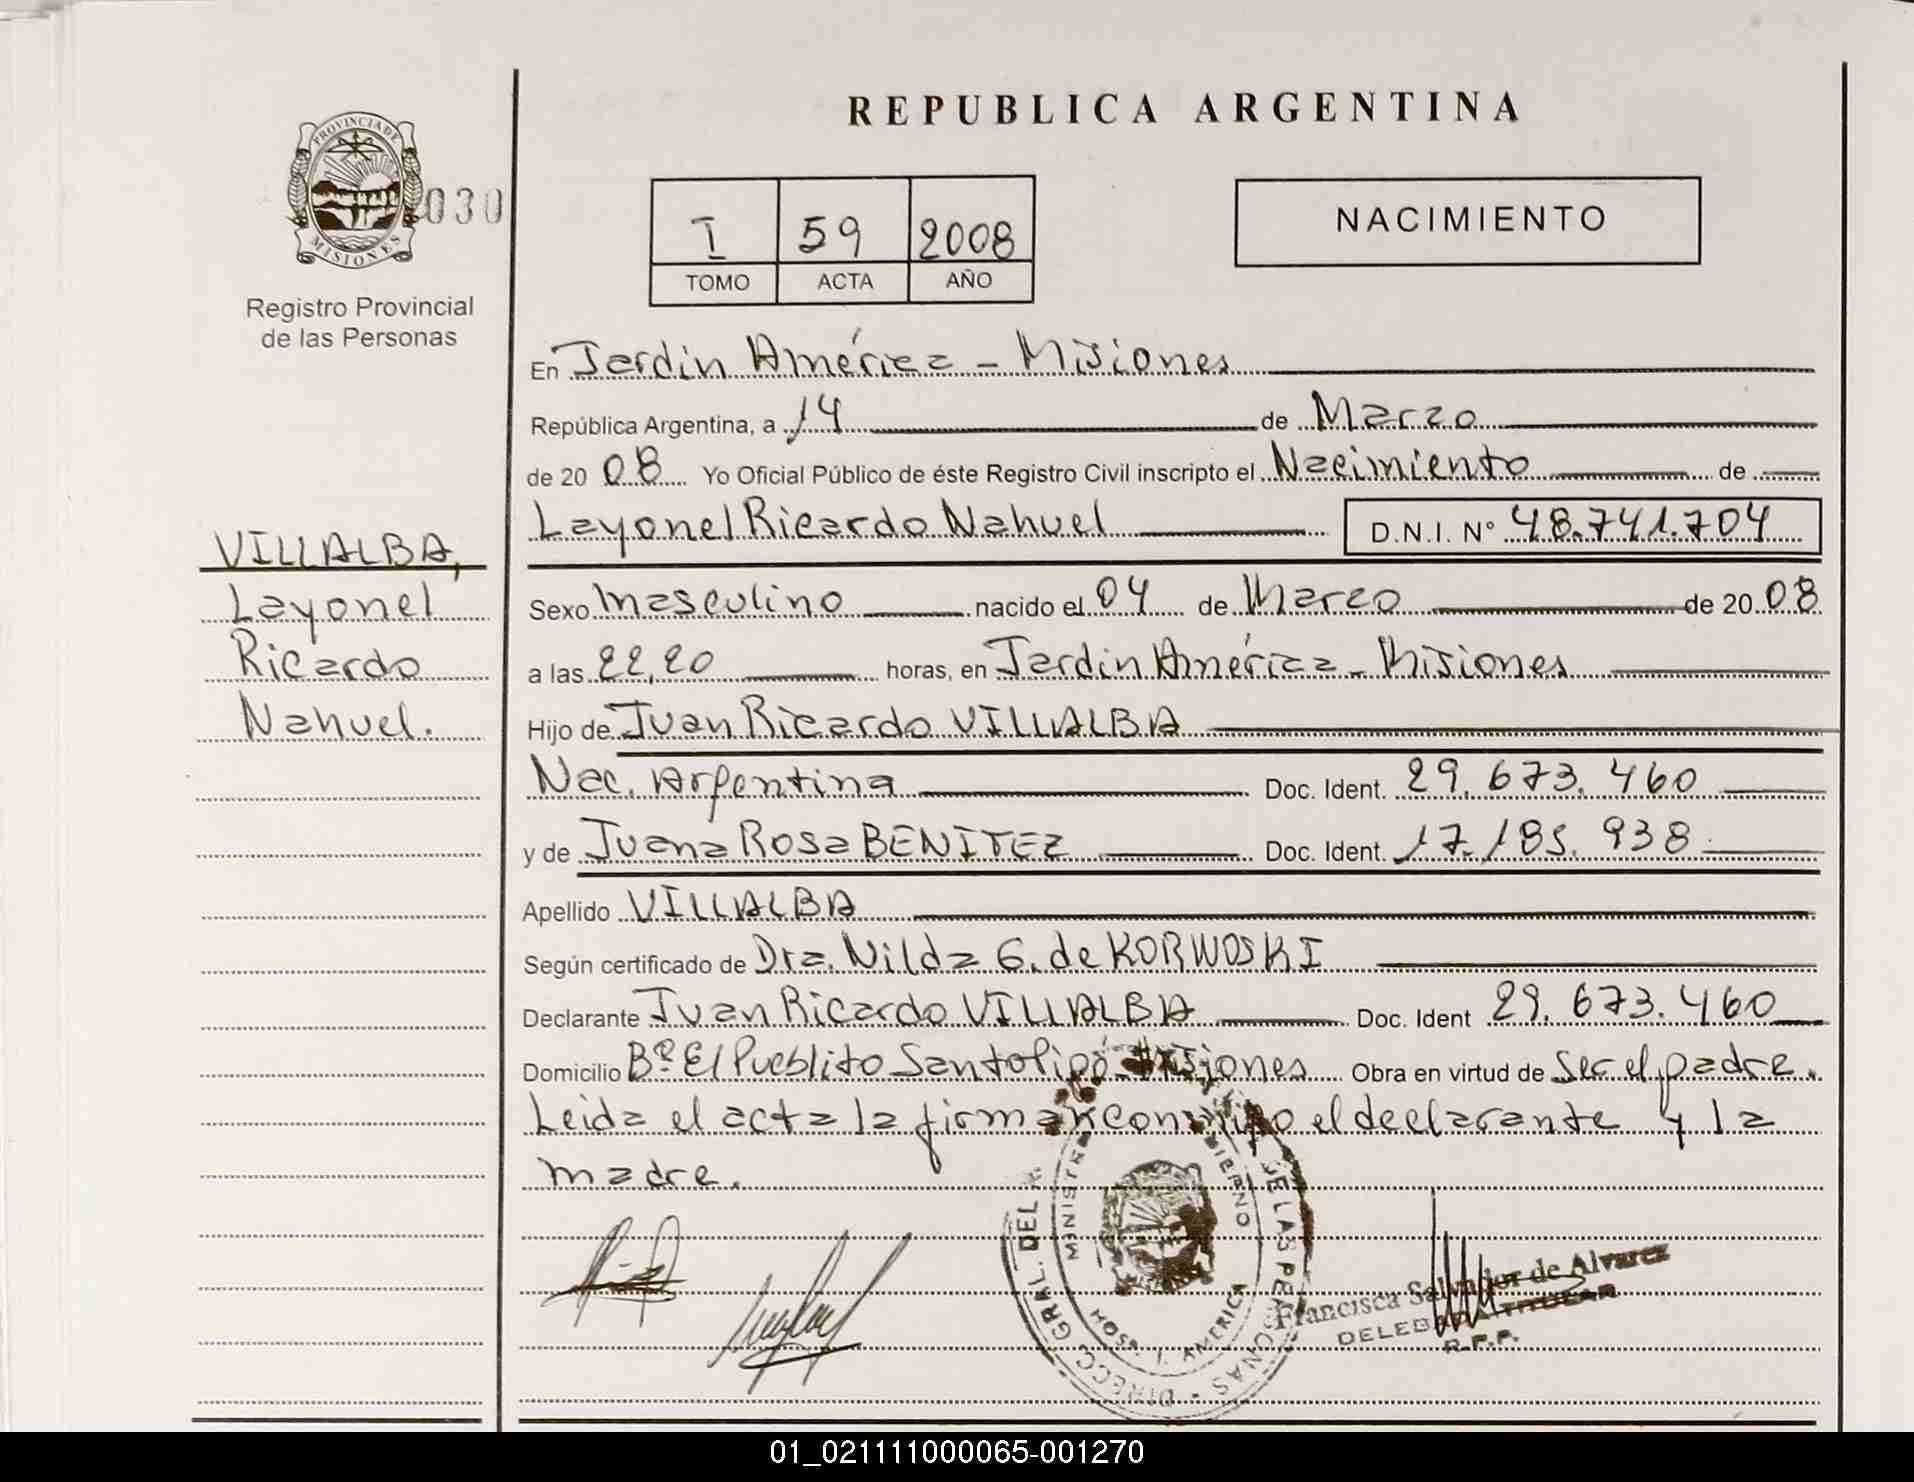 REPUBLICA ARGENTINA
PROVINCIA DE
MISIONES
030
Registro Provincial
de las Personas
I 59 2008
TOMO ACTA AÑO
NACIMIENTO
En Jardín América - Misiones
República Argentina, a 14 de Marzo
de 20 08 Yo Oficial Público de éste Registro Civil inscripto el Nacimiento de
Layonel Ricardo Nahuel D.N.I. Nº 48.741.704
VILLALBA,
Layonel
Ricardo
Nahuel.
Sexo Masculino nacido el 04 de Marzo de 20 08
a las 22,20 horas, en Jardín América - Misiones
Hijo de Juan Ricardo VILLALBA
Nac. Argentina Doc. Ident. 29.673.460
y de Juana Rosa BENITEZ Doc. Ident. 17.185.938
Apellido VILLALBA
Según certificado de Dra. Nilda G. de KORWOSKI
Declarante Juan Ricardo VILLALBA Doc. Ident 29.673.460
Domicilio Bº El Pueblito Santo Pipó - Misiones Obra en virtud de Ser el padre.
Leida el acta la firman conmigo el declarante y la
madre.
DIRECC. GRAL. DEL DE LAS PERSONAS
HOSP. J. AMERICA
Francisca Salvador de Alvarez
DELEGADA TITULAR
R.P.P.
01_021111000065-001270